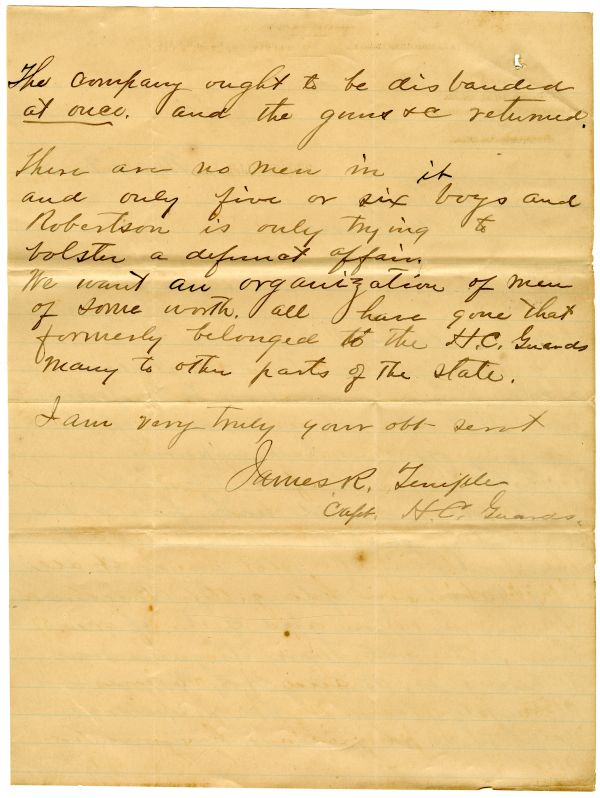 The company ought to be disbanded
at once. and the guns &c returned.
There are no men in it
and only five or six boys and
Robertson is only trying to
bolster a defunct affair.
We want an organization of men
of some worth. all have gone that
formerly belonged to the H.C. Guards
many to other parts of the state.
I am very truly your obt servt
James R. Temple
Capt. H.C. Guards.